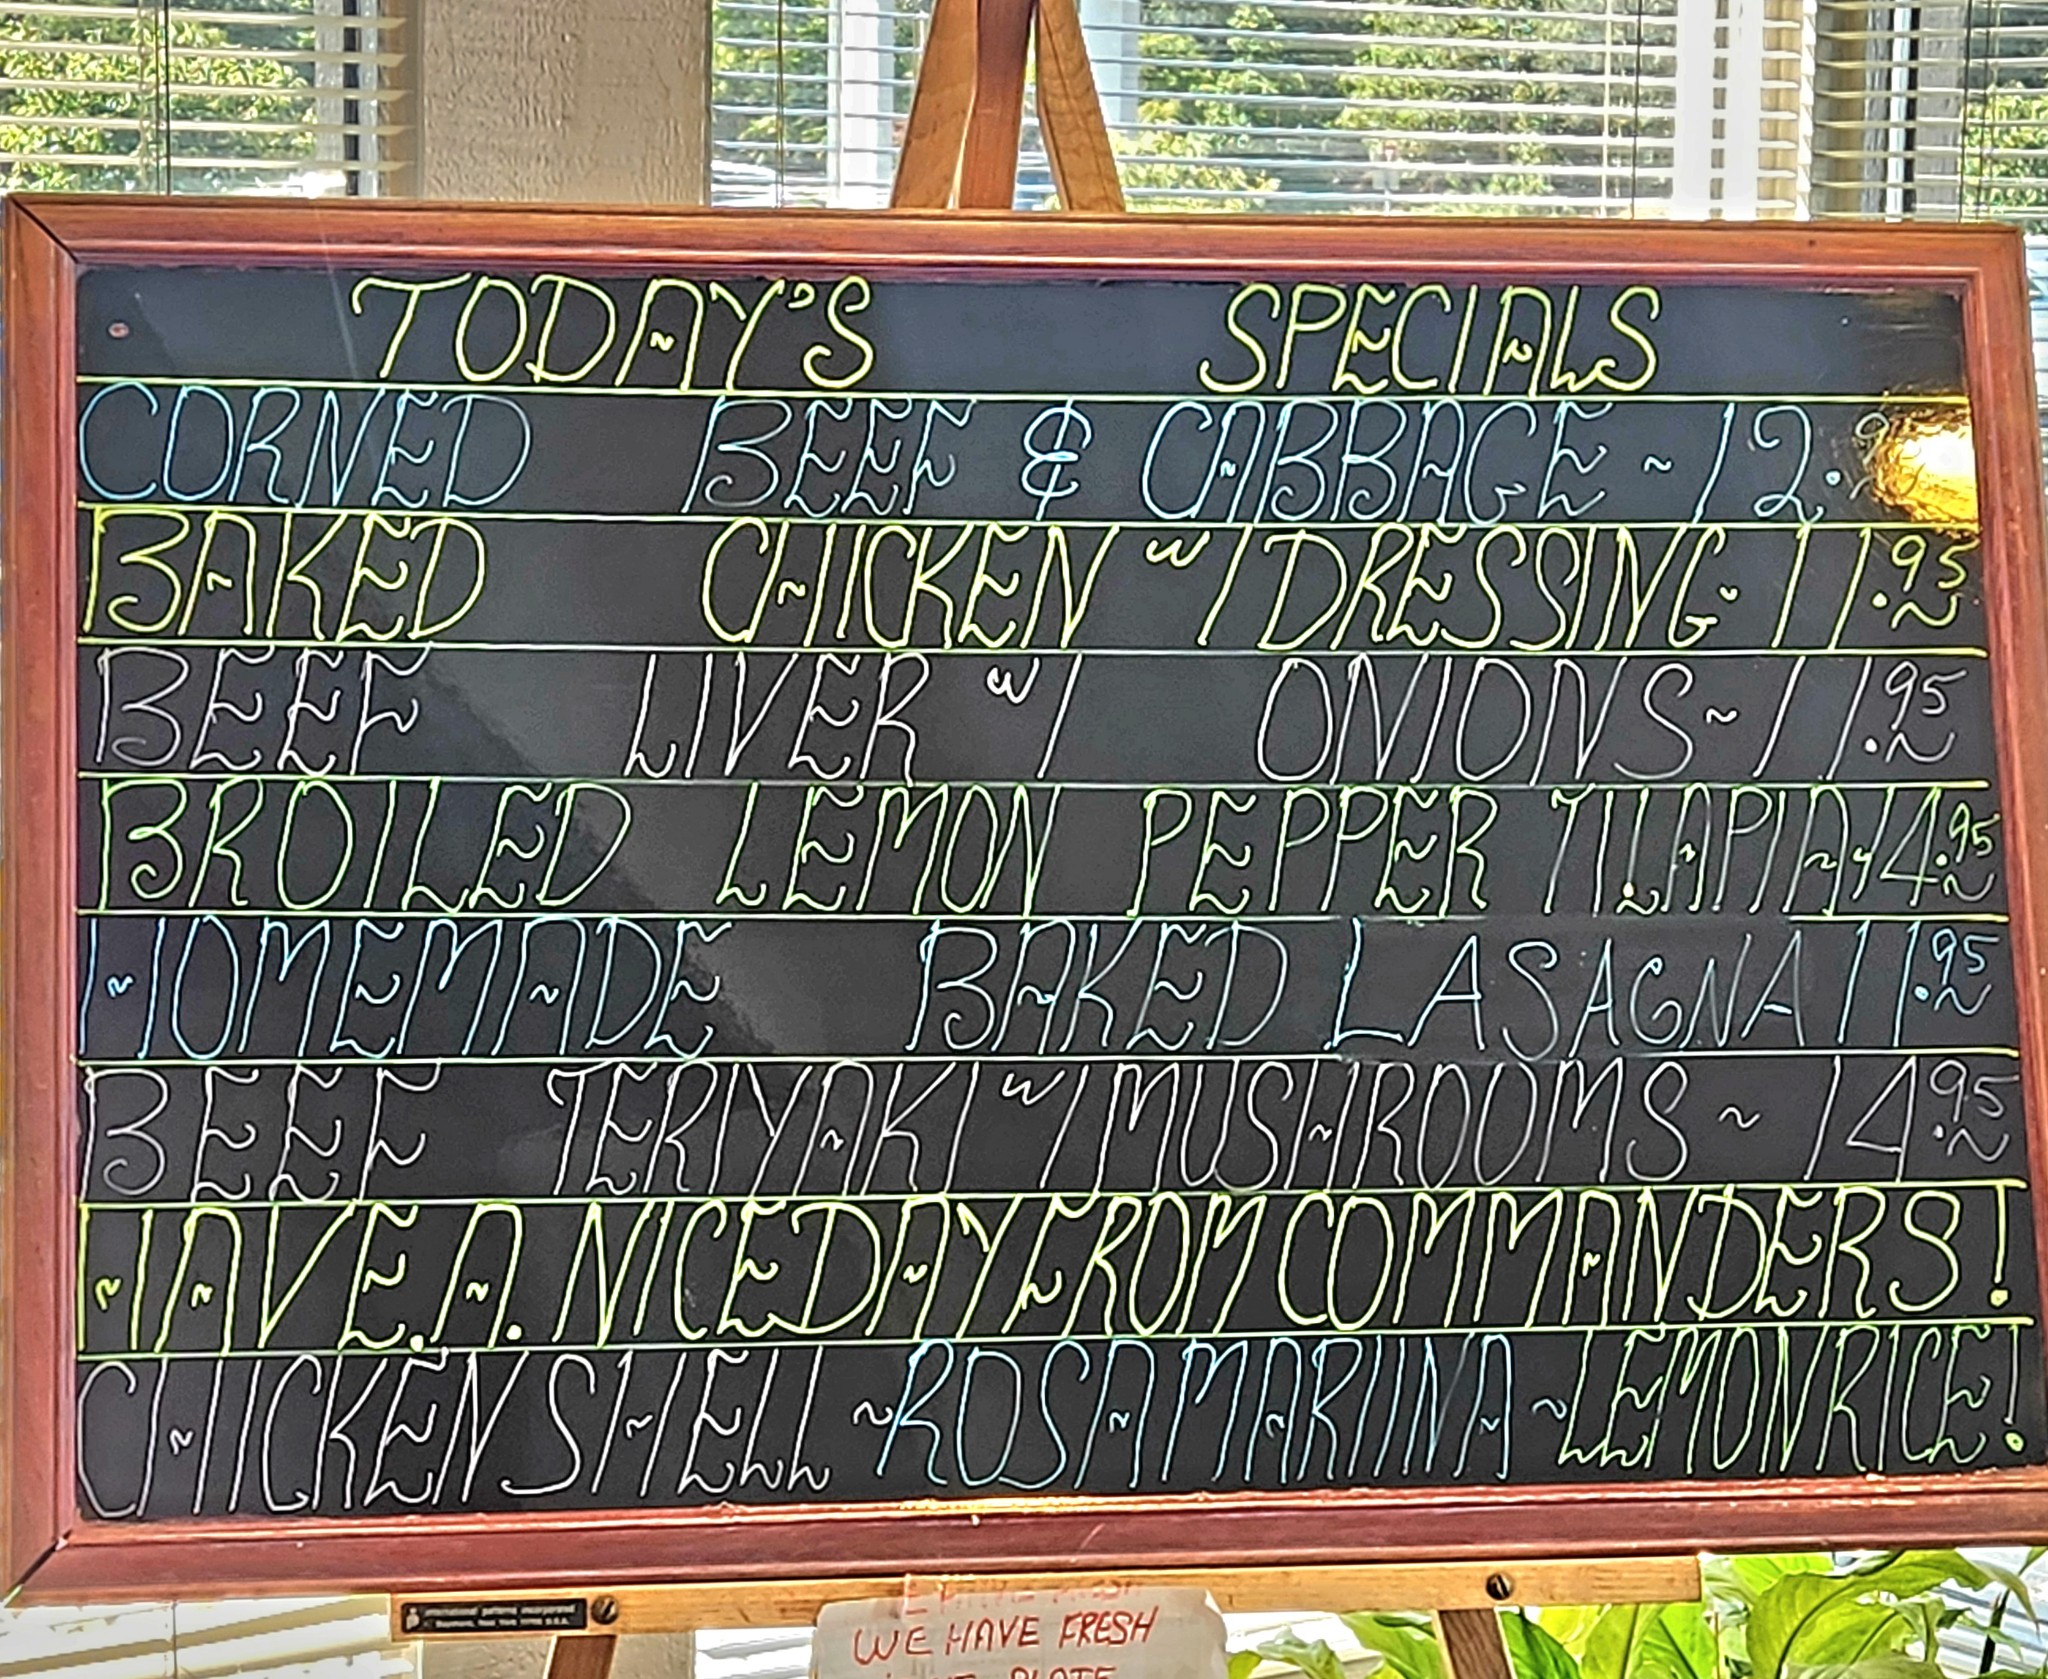 TODAY'S SPECIALS
CORNED BEEF & CABBAGE ~ 12.
BAKED CHICKEN w/ DRESSING ~ 11.95
BEEF LIVER w/ ONIONS ~ 11.95
BROILED LEMON PEPPER TILAPIA ~ 14.95
HOMEMADE BAKED LASAGNA 11.95
BEEF TERIYAKI w/ MUSHROOMS ~ 14.95
HAVE.A.NICE DAY FROM COMMANDERS!
CHICKEN SHELL ~ ROSAMARIINA ~ LEMON RICE!
WE HAVE FRESH
PLATE